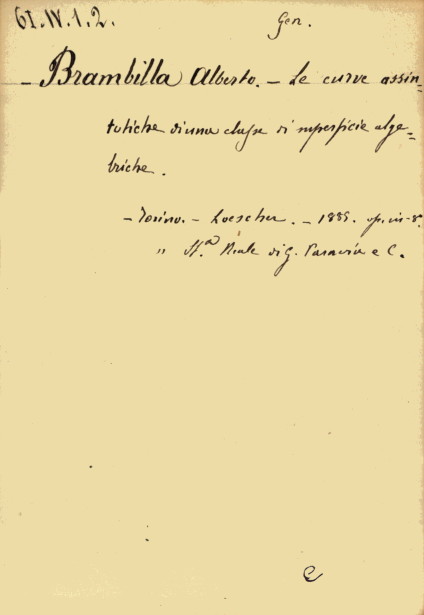 61.IV.1.2. Gen.
- Brambilla Alberto. - Le curve assin=
totiche di una classe di superficie alge=
briche.
- Torino. - Loescher. - 1885. op. in-8º.
" St.ª Reale di G. Paravia e C.
C